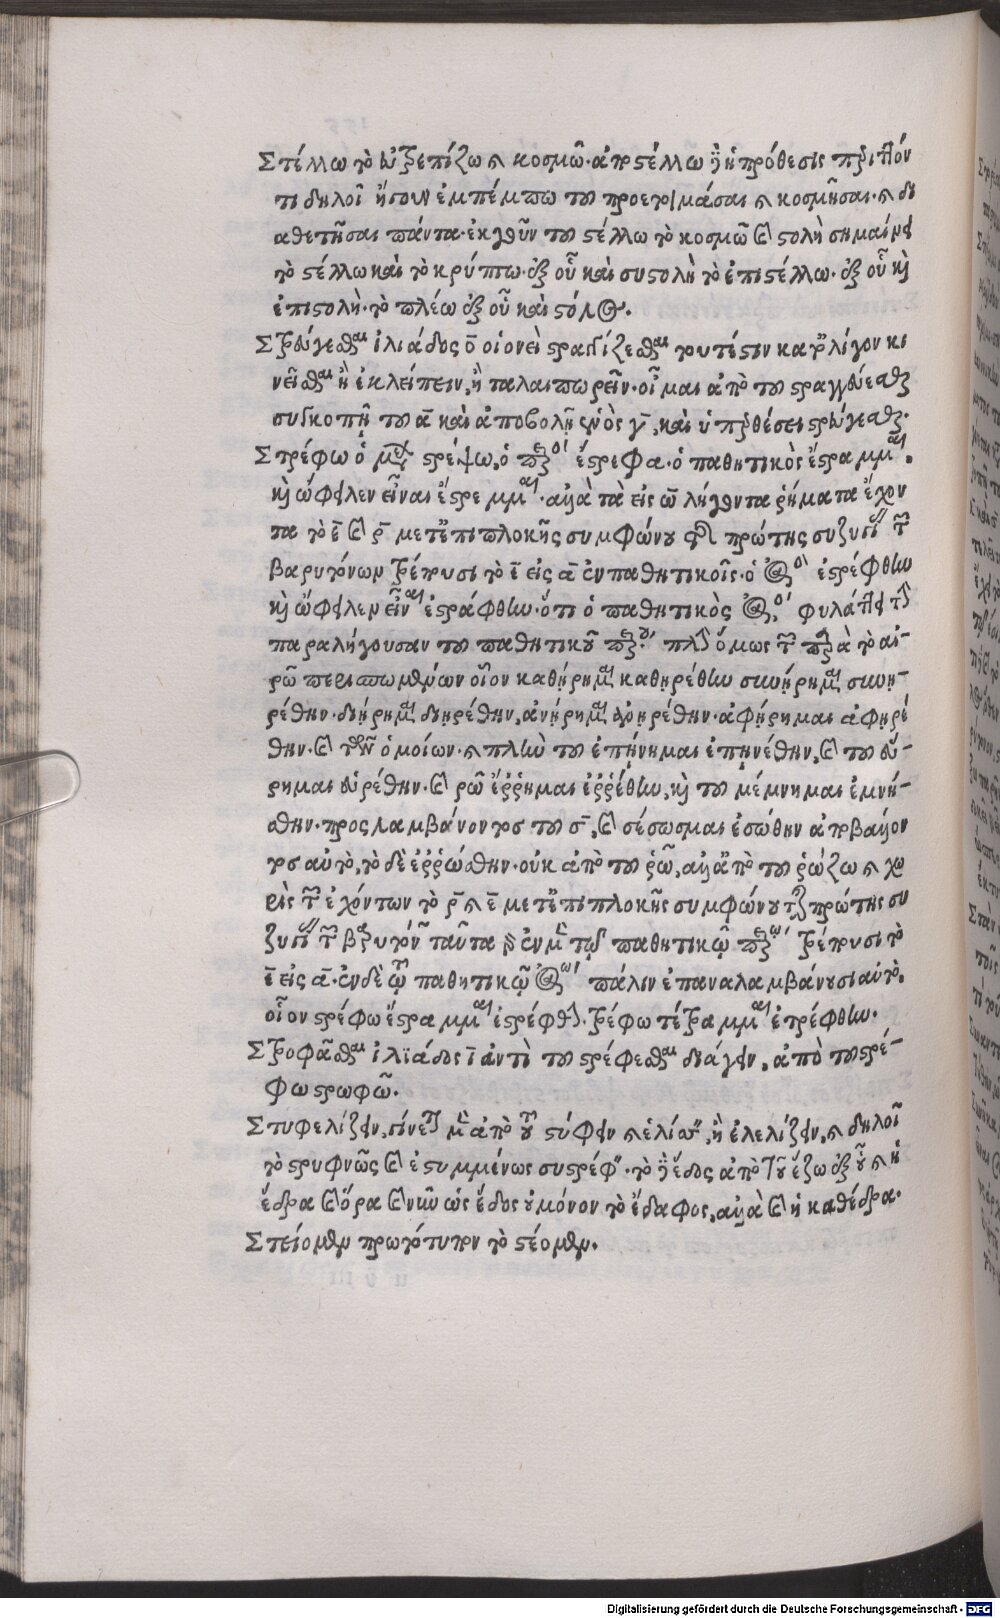 Στέλλω τὸ εὐτρεπίζω καὶ κοσμῶ· ἀποστέλλω δὲ ἡ πρόθεσις περιττόν
τι δηλοῖ ἤγουν ἐμπέμπω τὸ προετοιμάσαι καὶ κοσμῆσαι· καὶ
αθετῆσαι πάντα· ἐκ γοῦν τοῦ στέλλω τὸ κοσμῶ καὶ στολὴ σημαίνει
τὸ στέλλω καὶ τὸ κρύπτω· ἐξ οὗ καὶ συστολὴ τὸ ἐπιστέλλω· ἐξ οὗ καὶ
ἐπιστολὴ· τὸ πλέω ἐξ οὗ καὶ στόλος.
Στρεύγεσθαι ἰλιάδος ο οἱονεὶ στραγγίζεσθαι τουτέστιν κατ' ὀλίγον κι
νεῖσθαι ἢ ἐκλείπειν, ἢ ταλαιπωρεῖν· οἶμαι ἀπὸ τοῦ στραγγεύεσθαι
συγκοπῇ τοῦ α καὶ ἀποβολῇ ἑνὸς γ, καὶ ὑπερθέσει στρεύγεσθαι.
Στρέφω ὁ μέλλων στρέψω, ὁ παρακείμενος ἔστρεφα· ὁ παθητικὸς ἔστραμμαι.
καὶ ὤφειλεν εἶναι ἔστρεμμαι· ἀλλὰ τὰ εἰς ω λήγοντα ῥήματα ἔχον
τα τὸ ε καὶ ρ μετ' ἐπιπλοκῆς συμφώνου τῆς πρώτης συζυγίας τῶν
βαρυτόνων τρέπουσι τὸ ε εἰς α ἐν παθητικοῖς· ὁ ἀόριστος ἐστρέφθην
καὶ ὤφειλεν εἶναι ἐστράφθην· ὅτι ὁ παθητικὸς ἀόριστος φυλάττει τὴν
παραλήγουσαν τοῦ παθητικοῦ παρακειμένου πλὴν ὅμως τῶν παρὰ τὸ αἱ-
ρῶ περισπωμένων οἷον καθῄρημαι καθῃρέθην συνῄρημαι συνῃ-
ρέθην· διῄρημαι διῃρέθην, ἀνῄρημαι ἀνῃρέθην· ἀφῄρημαι ἀφῃρέ
θην· καὶ τῶν ὁμοίων· καὶ πλὴν τοῦ ἐπῄνημαι ἐπῃνέθην, καὶ τοῦ εὕ-
ρημαι εὑρέθην· καὶ ῥῶ ἔῤῥημαι ἐῤῥέθην, καὶ τοῦ μέμνημαι ἐμνή-
σθην· προσλαμβάνοντος τοῦ σ, καὶ σέσωσμαι ἐσώθην ἀποβαλόν
τος αὐτὸ, τὸ δὲ ἐῤῥώσθην· οὐκ ἀπὸ τοῦ ῥῶ, ἀλλ' ἀπὸ τοῦ ῥώζω καὶ χω
ρὶς τῶν ἐχόντων τὸ ρ καὶ ε μετ' ἐπιπλοκῆς συμφώνου τῆς πρώτης συ
ζυγίας τῶν βαρυτόνων ταῦτα γὰρ ἐν μὲν τῷ παθητικῷ παρακειμένῳ τρέπουσι τὸ
ε εἰς α· ἐν δὲ τῷ παθητικῷ ἀορίστῳ πάλιν ἐπαναλαμβάνουσι αὐτὸ.
οἷον στρέφω ἔστραμμαι ἐστρέφθην. τρέφω τέτραμμαι ἐτρέφθην.
Στροφᾶσθαι ἰλϊάδος ϊ ἀντὶ τοῦ στρέφεσθαι διάγειν, ἀπὸ τοῦ στρέ-
φω στρωφῶ.
Στυφελίζειν, γίνεται μὲν ἀπὸ τοῦ στύφειν καὶ ἑλίσσειν, ἢ ἐλελίζειν, καὶ δηλοῖ
τὸ στρυφνῶς καὶ ἐστυμμένως συστρέφειν· τὸ δὲ ἕδος ἀπὸ τοῦ ἕζω ἐξ οὗ καὶ ἡ
ἕδρα καὶ ὅρα καὶ νῦν ὡς ἕδος οὐ μόνον τὸ ἔδαφος, ἀλλὰ καὶ ἡ καθέδρα.
Στείομεν πρωτότυπον τὸ στέομεν.
Digitalisierung gefördert durch die Deutsche Forschungsgemeinschaft - DFG